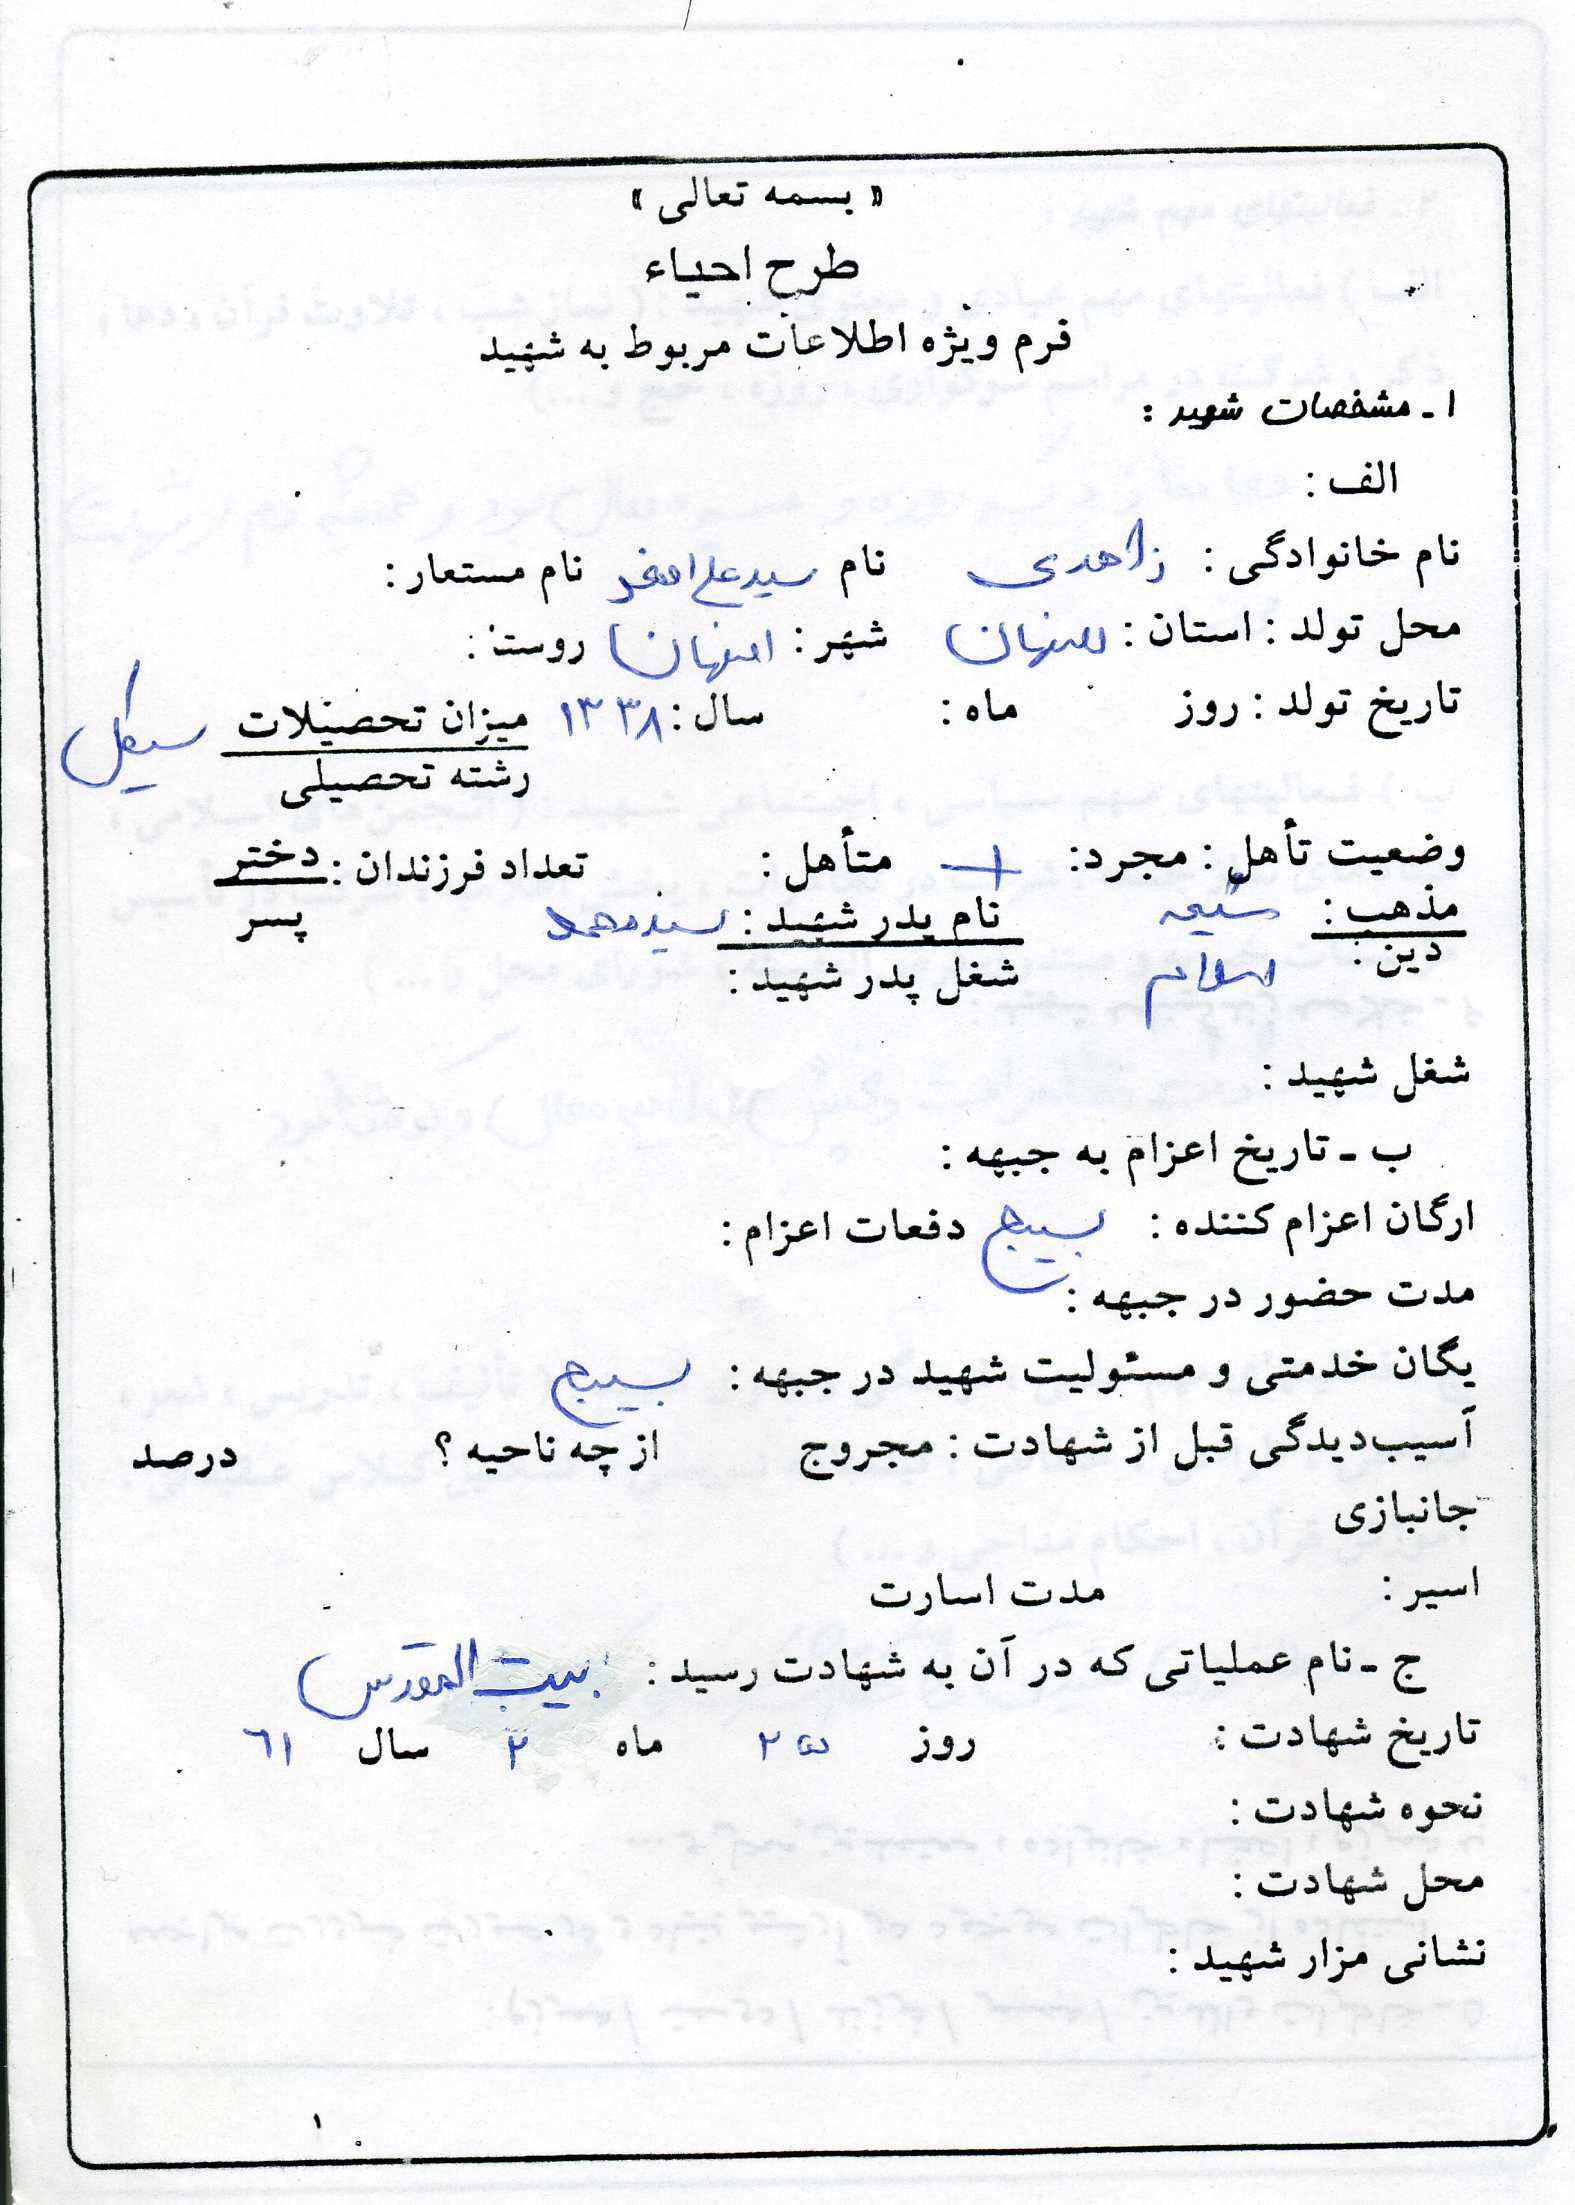 « بسمه تعالی »
طرح احیاء
فرم ویژه اطلاعات مربوط به شهید
۱ ـ مشخصات شهید :
الف :
نام خانوادگی : زاهدی نام سید علی اصغر نام مستعار :
محل تولد : استان : اصفهان شهر : اصفهان روستا :
تاریخ تولد : روز ماه : سال : ۱۳۳۸ میزان تحصیلات سیکل
رشته تحصیلی
وضعیت تأهل : مجرد : + متأهل : تعداد فرزندان : دختر
پسر
مذهب : شیعه نام پدر شهید : سید محمد
دین : اسلام شغل پدر شهید :
شغل شهید :
ب ـ تاریخ اعزام به جبهه :
ارگان اعزام کننده : بسیج دفعات اعزام :
مدت حضور در جبهه :
یگان خدمتی و مسئولیت شهید در جبهه : بسیج
آسیب‌دیدگی قبل از شهادت : مجروج از چه ناحیه ؟ درصد
جانبازی
اسیر : مدت اسارت
ج ـ نام عملیاتی که در آن به شهادت رسید : بیت المقدس
تاریخ شهادت : روز ۲۵ ماه ۲ سال ۶۱
نحوه شهادت :
محل شهادت :
نشانی مزار شهید :
۱